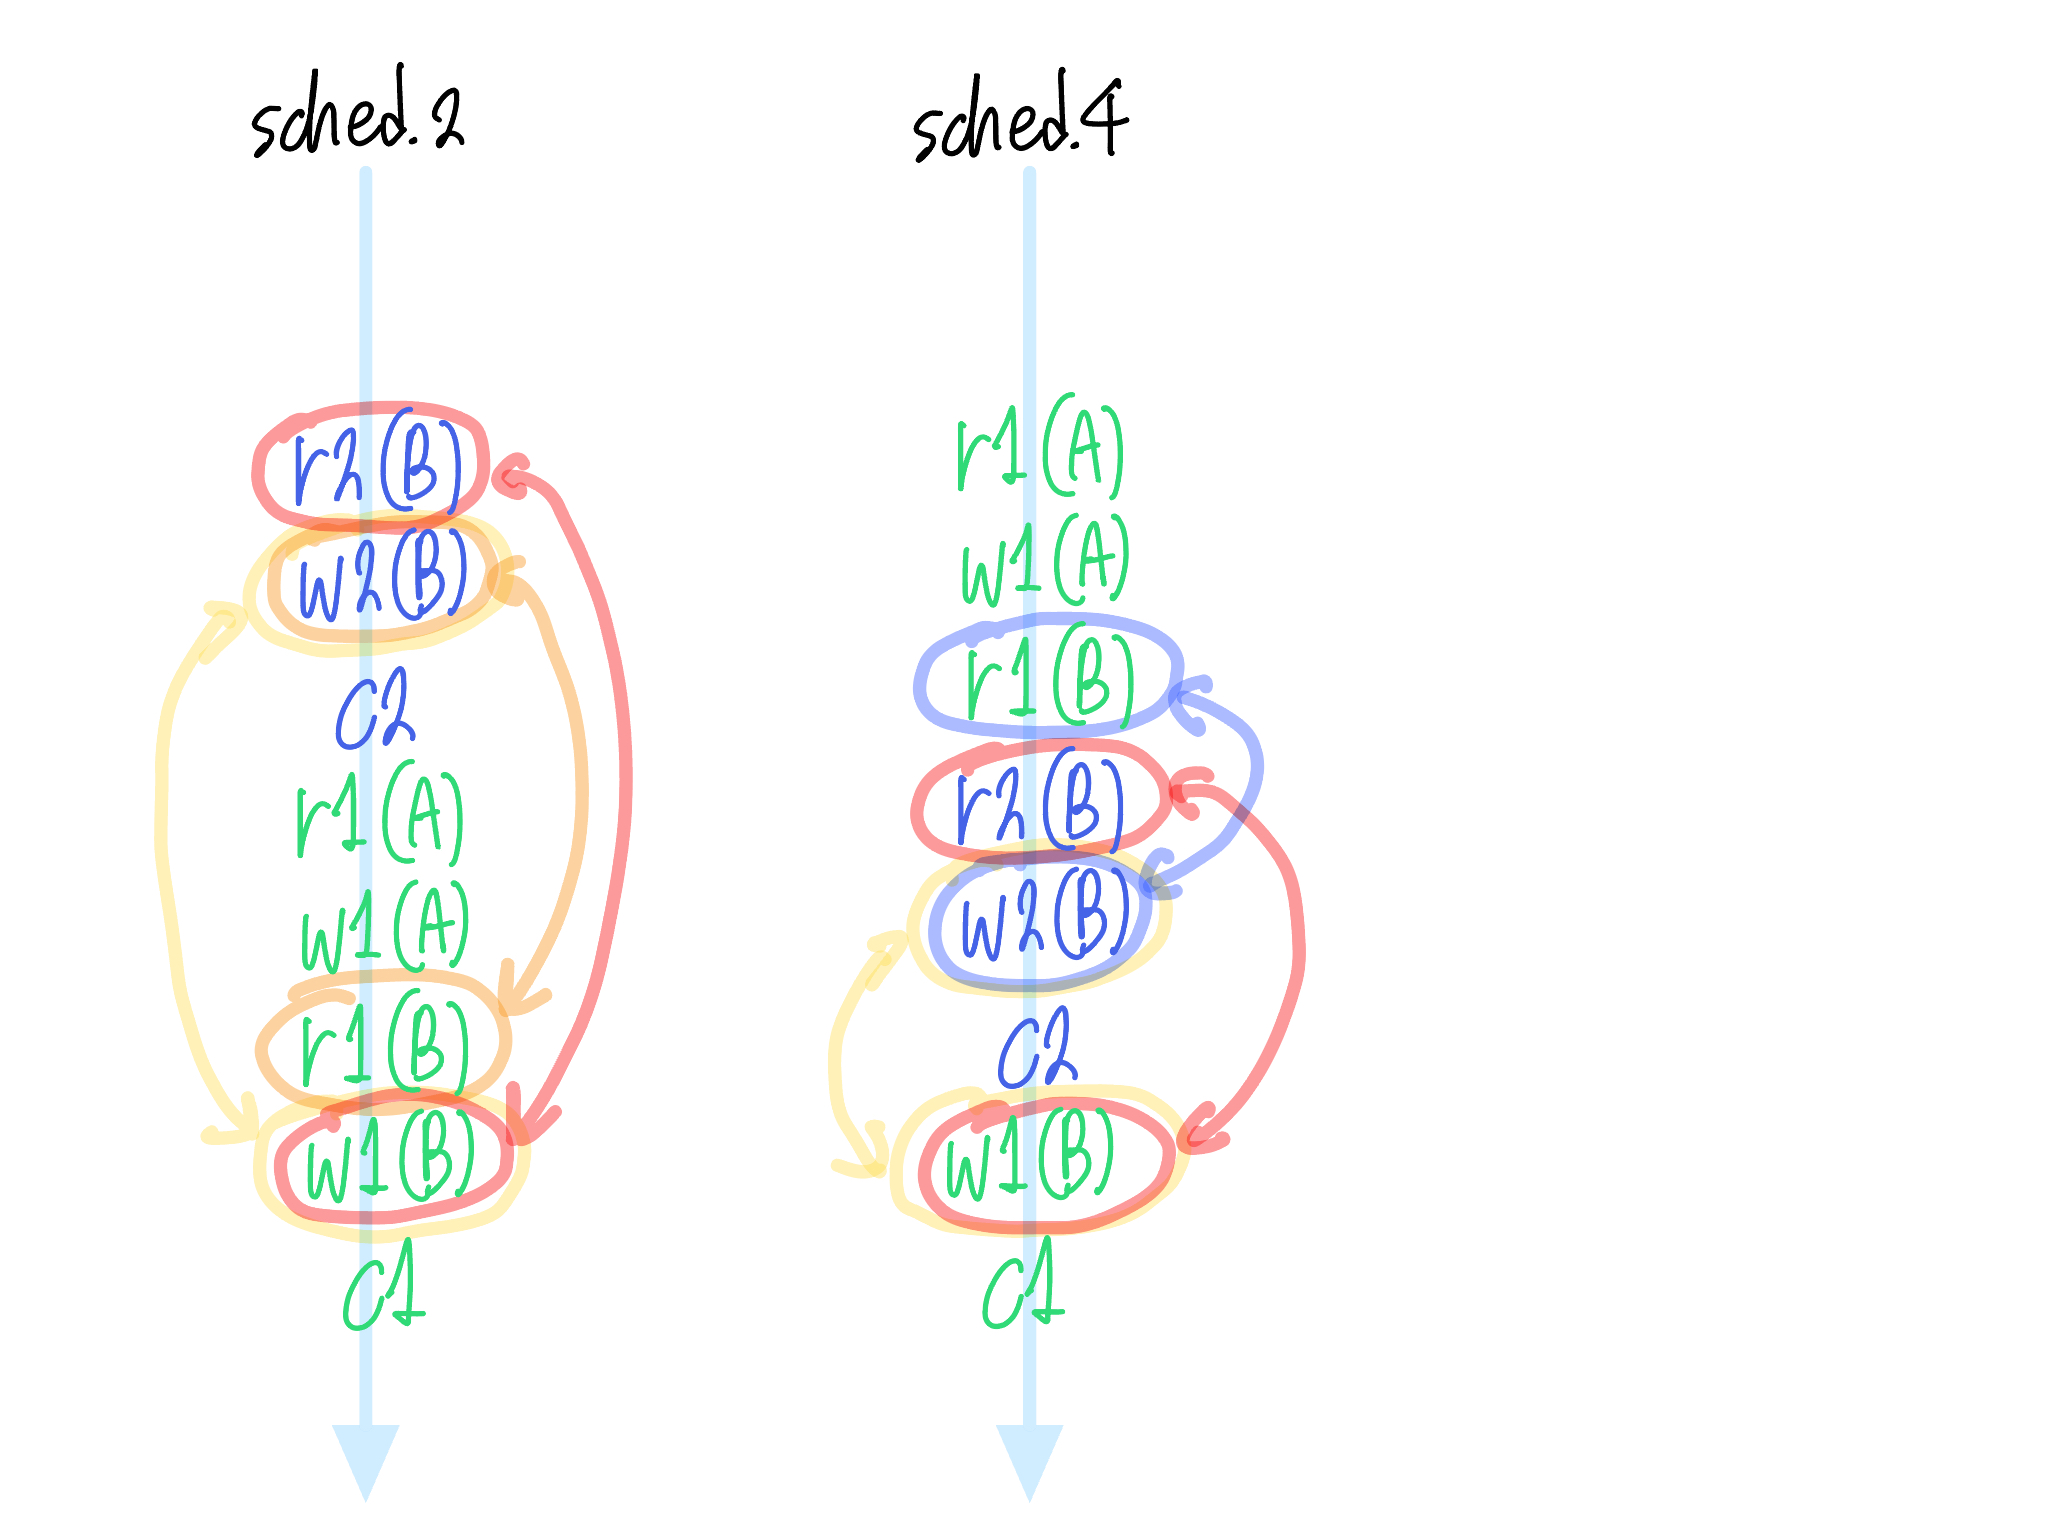 sched.2
r2(B)
w2(B)
c2
r1(A)
w1(A)
r1(B)
w1(B)
c1
sched.4
r1(A)
w1(A)
r1(B)
r2(B)
w2(B)
c2
w1(B)
c1